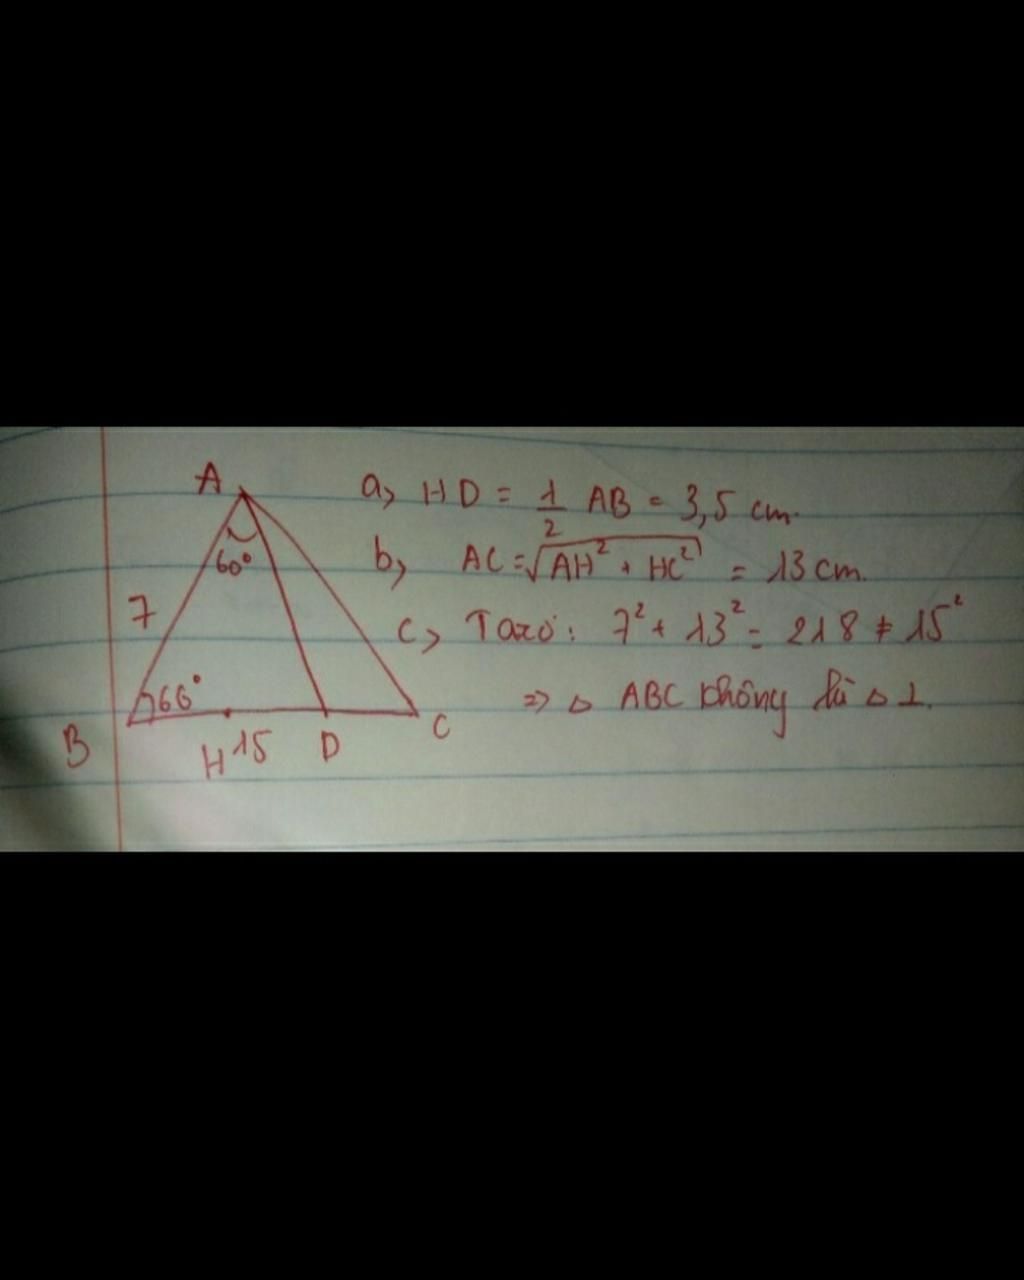 A
60°
7
66°
B
H 15 D
C
a) HD = 1/2 AB = 3,5 cm.
b) AC = √(AH² + HC²) = 13 cm.
c) Ta có: 7² + 13² = 218 ≠ 15²
=> △ ABC không là △ ⊥.